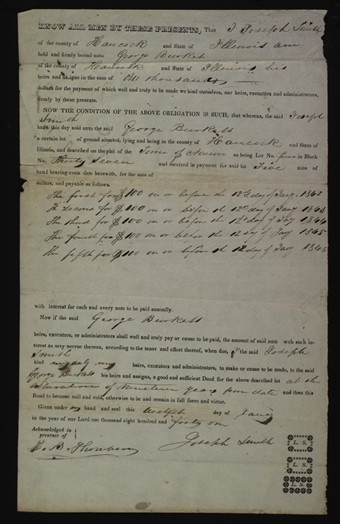 KNOW ALL MEN BY THESE PRESENTS, That I Joseph Smith
of the county of Hancock and State of Illinois am
held and firmly bound unto George Burket
of the county of Hancock and State of Illinois his
heirs and assigns in the sum of thousand
dollars for the payment of which well and truly to be made we bind ourselves, our heirs, executors and administrators,
firmly by these presents.
NOW THE CONDITION OF THE ABOVE OBLIGATION IS SUCH, that whereas, the said Joseph
Smith
has this day sold unto the said George Burkett
a certain lot of ground situated, lying and being in the county of Hancock and State of
Illinois, and described on the plat of the Town of Nauvoo as being Lot No. in Block
No. Thirty Seven and received in payment for said lot Five notes of
hand bearing even date herewith, for the sum of
dollars, and payable as follows.
The first for $100 on or before the 12th day of 1842
The Second for $100 on or before the 12th day of 1843
The third for $100 on or before the 12th day of 1844
The fourth for $100 on or before the 12 day of 1845
the fifth for $100 on or before the 12 day of 1846
with interest for each and every note to be paid annually.
Now if the said George Burkett
heirs, executors or administrators shall well and truly pay or cause to be paid, the amount of said note with such in-
terest as may accrue thereon, according to the tenor and effect thereof, when due, if the said Joseph
Smith
bind myself my heirs, executors and administrators, to make or cause to be made, to the said
George Burkett his heirs and assigns, a good and sufficient Deed for the above described lot at the
expiration of nineteen years from date and then this
Bond to become null and void, otherwise to be and remain in full force and virtue.
Given under my hand and seal this twelfth day of
in the year of our Lord one thousand eight hundred and forty one
Acknowledged in
presence of
Joseph Smith
L. S.
L. S.
L. S.